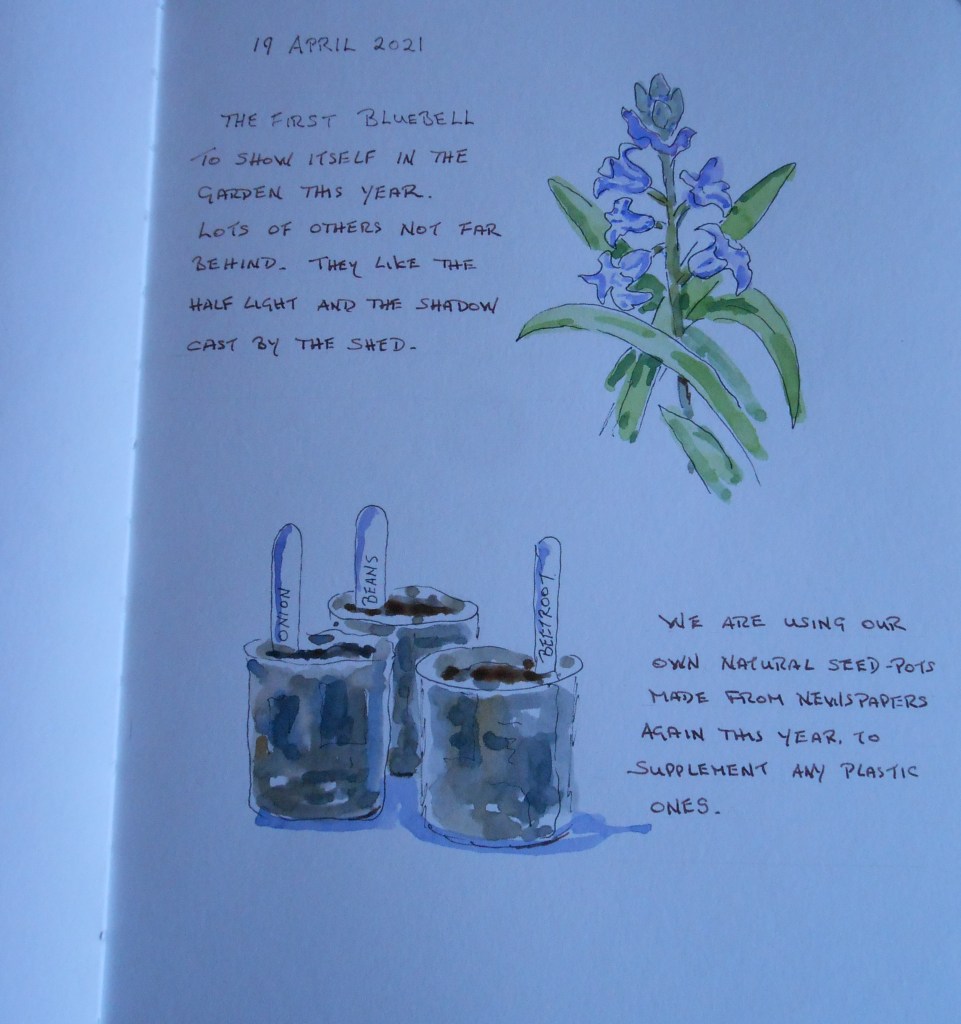 19 APRIL 2021
THE FIRST BLUEBELL
TO SHOW ITSELF IN THE
GARDEN THIS YEAR.
LOTS OF OTHERS NOT FAR
BEHIND. THEY LIKE THE
HALF LIGHT AND THE SHADOW
CAST BY THE SHED.
ONION
BEANS
BEETROOT
WE ARE USING OUR
OWN NATURAL SEED-POTS
MADE FROM NEWSPAPERS
AGAIN THIS YEAR. TO
SUPPLEMENT ANY PLASTIC
ONES.